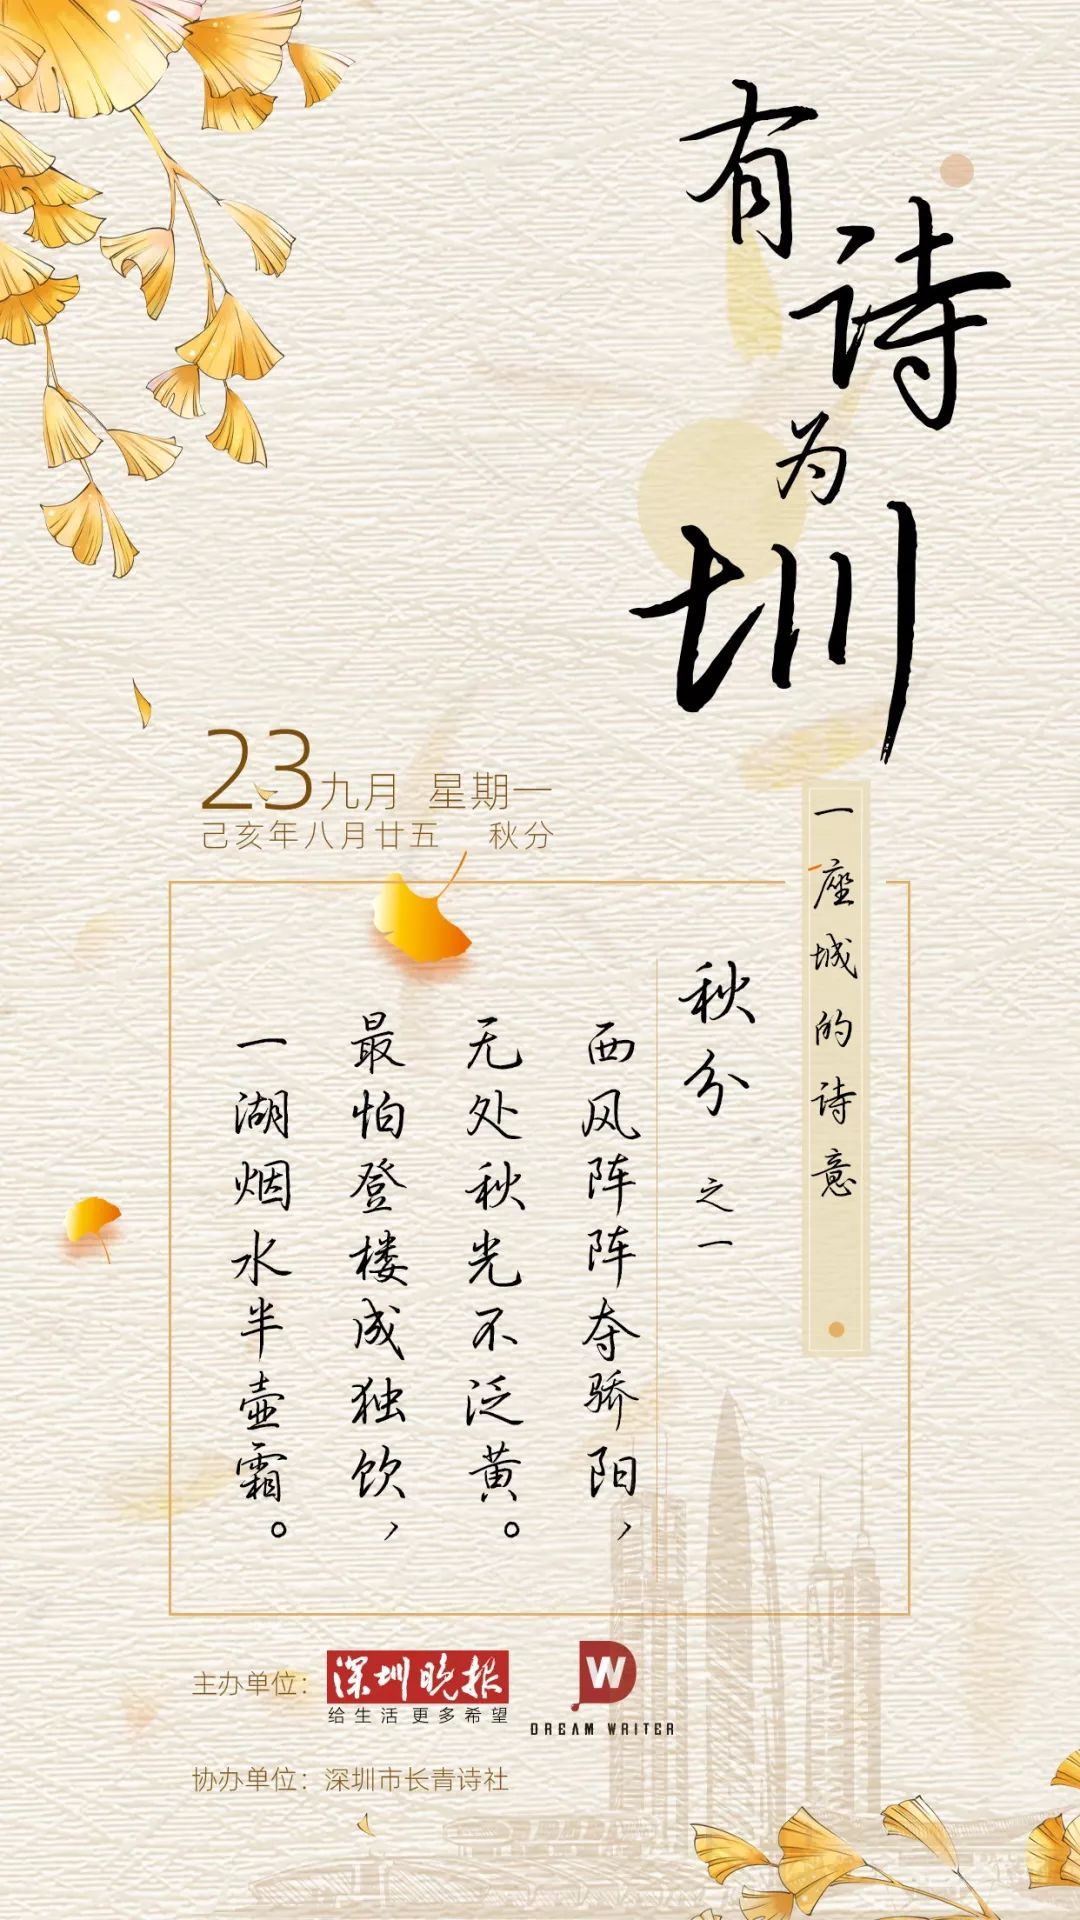 有诗为圳
23九月 星期一
己亥年八月廿五 秋分
一座城的诗意
秋分 之一
西风阵阵夺骄阳，
无处秋光不泛黄。
最怕登楼成独饮，
一湖烟水半壶霜。
主办单位：深圳晚报
给生活更多希望
DW
DREAM WRITER
协办单位：深圳市长青诗社